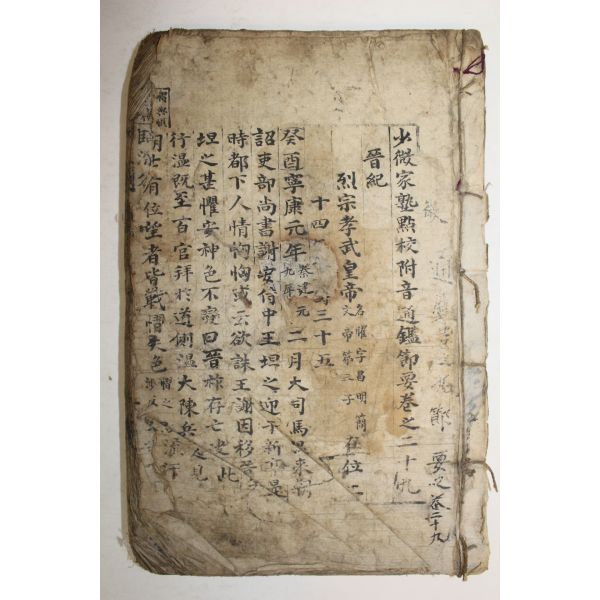 少微家塾點校附音通鑑節要卷之二十九
晉紀
烈宗孝武皇帝 名曜字昌明簡文帝第三子 在位二
十四 壽三十五
癸酉寧康元年 秦建元九年 二月大司馬溫來朝
詔吏部尙書謝安侍中王坦之迎于新亭是
時都下人情恟恟或云欲誅王謝因移晉
坦之甚懼安神色不變曰晉祚存亡決此
行溫旣至百官拜於道側溫大陳兵 見
朝士有位望者皆戰慴失色
通鑑 節要之卷二十九